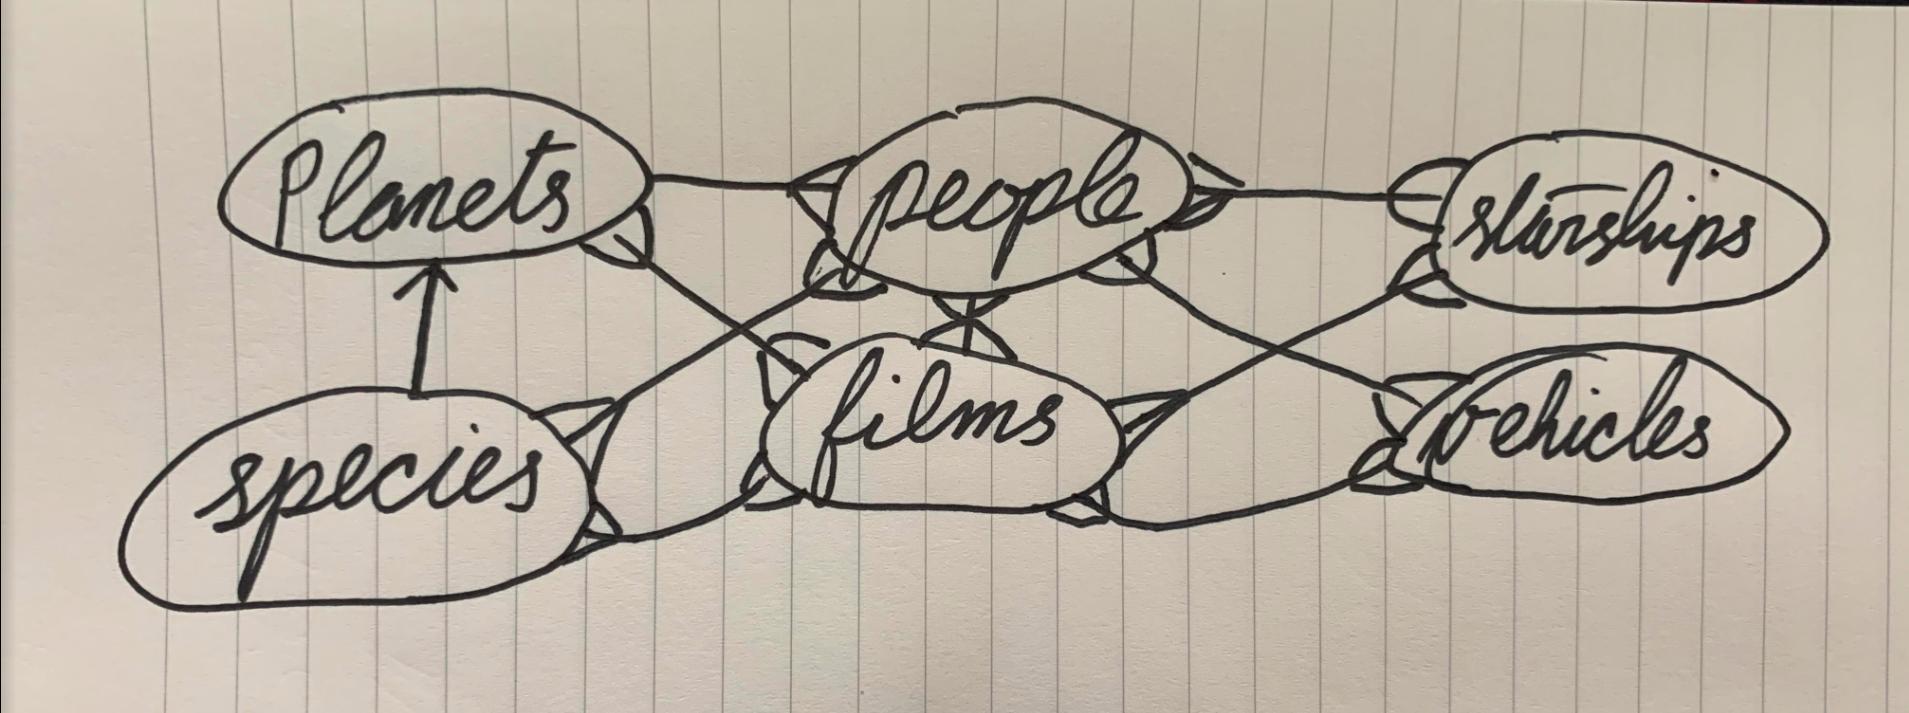 Planets people starships
species films vehicles